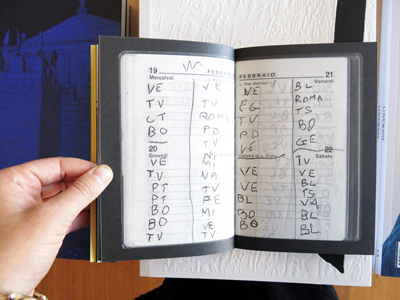 19 FEBBRAIO
Mercoledì
VE VE
TV TV
CT ROMA
BO PD
TV
20
Giovedì
VE MI
TV NA
PT TV
PT PE
BO MI
BO VE
TV TV
FEBBRAIO 21
Venerdì
VE BL
FG ROMA
TV TS
PD BO
VE GE
22
Sabato
TV
VE VE
VE BL
BL TS
VA
BO BL
BO BL